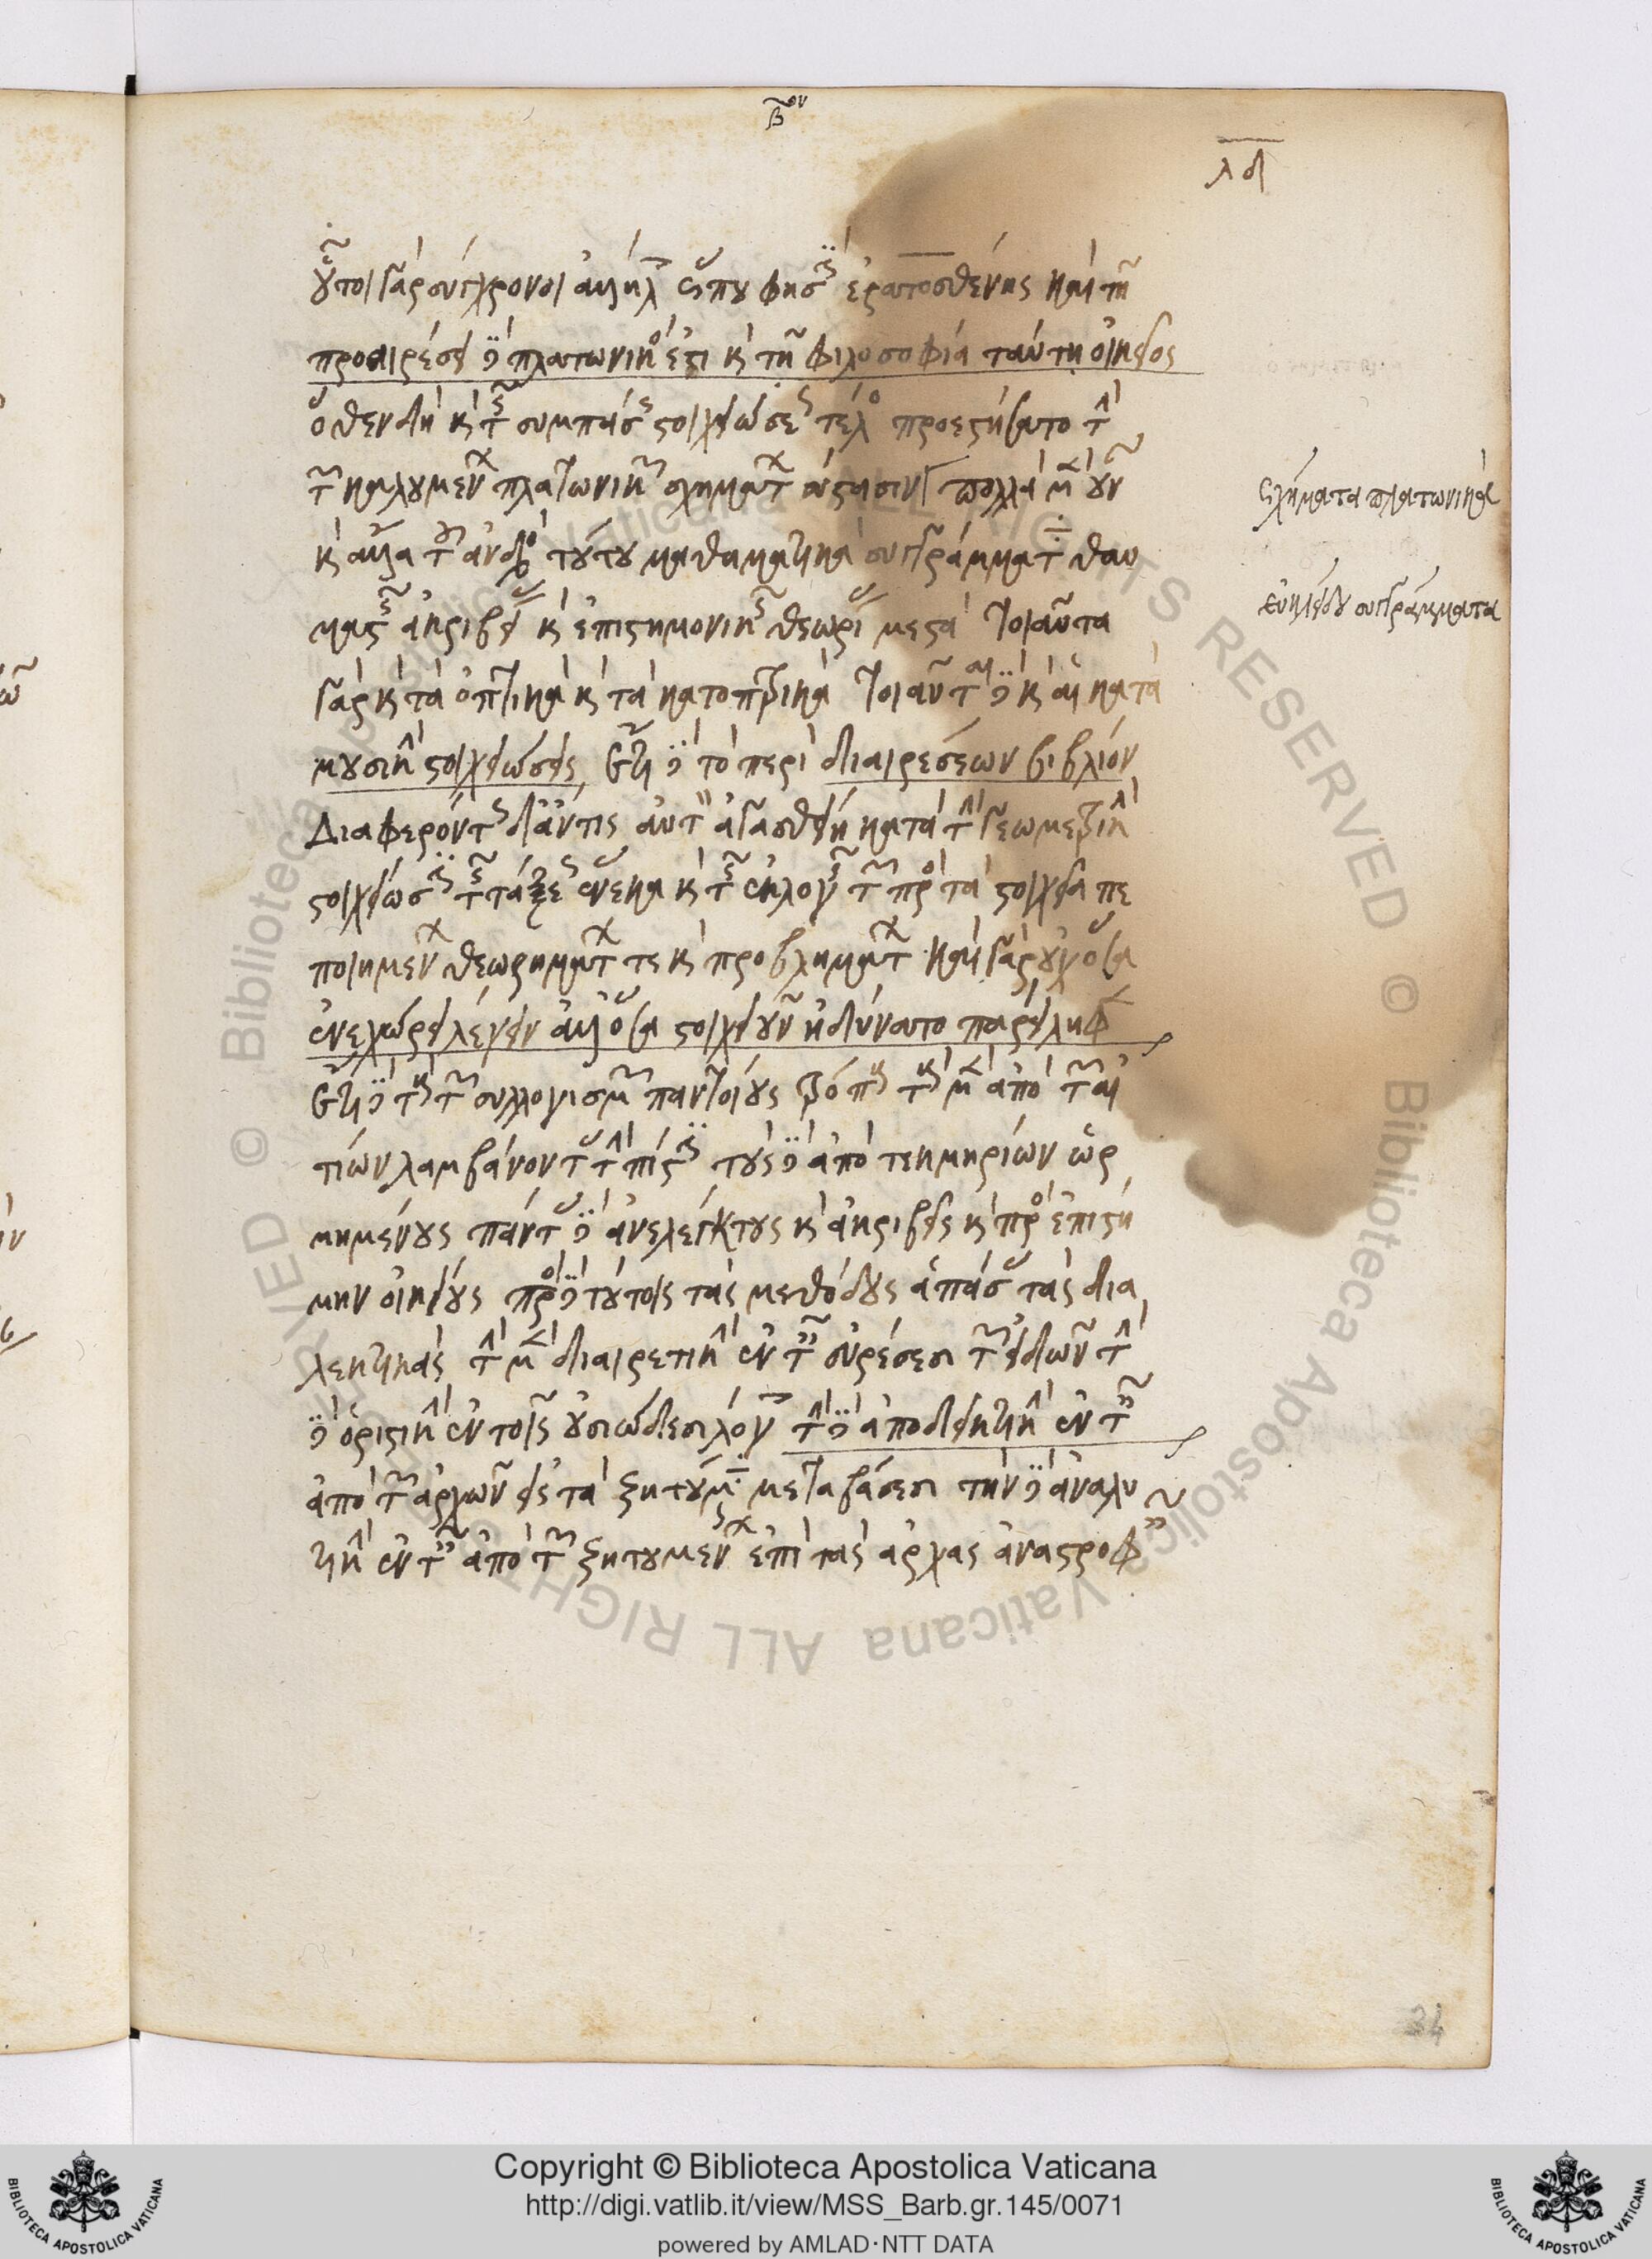 β̅ον
λδ
οὗτοι γὰρ σύγχρονοι ἀλλήλοις ὥς που φησὶν ἐρατοσθένης καὶ τῇ
προαιρέσει δὲ πλατωνικός ἐστι καὶ τῇ φιλοσοφίᾳ ταύτῃ οἰκεῖος
ὅθεν δὴ καὶ τῆς συμπάσης στοιχειώσεως τέλος προεστήσατο τὴν
τῶν καλουμένων πλατωνικῶν σχημάτων σύστασιν πολλὰ μὲν οὖν
καὶ ἄλλα τοῦ ἀνδρὸς τούτου μαθηματικὰ συγγράμματα θαυ
μαστῆς ἀκριβείας καὶ ἐπιστημονικῆς θεωρίας μεστά τοιαῦτα
γὰρ καὶ τὰ ὀπτικὰ καὶ τὰ κατοπτρικά τοιαῦται δὲ καὶ αἱ κατὰ
μουσικὴν στοιχειώσεις ἔτι δὲ τὸ περὶ διαιρέσεων βιβλίον
Διαφερόντως δ' ἄν τις αὐτὸν ἀγασθείη κατὰ τὴν γεωμετρικὴν
στοιχείωσιν τῆς τάξεως ἕνεκα καὶ τῆς ἐκλογῆς τῶν πρὸς τὰ στοιχεῖα πε
ποιημένων θεωρημάτων τε καὶ προβλημάτων καὶ γὰρ οὐχ ὅσα
ἐνεχώρει λέγειν ἀλλ' ὅσα στοιχειοῦν ἠδύνατο παρείληφεν
ἔτι δὲ τοὺς τῶν συλλογισμῶν παντοίους τρόπους τοὺς μὲν ἀπὸ τῶν αἰ
τίων λαμβάνοντας τὴν πίστιν τοὺς δὲ ἀπὸ τεκμηρίων ὡρ
μημένους πάντας δὲ ἀνελέγκτους καὶ ἀκριβεῖς καὶ πρὸς ἐπιστή
μην οἰκείους πρὸς δὲ τούτοις τὰς μεθόδους ἁπάσας τὰς δια
λεκτικάς τὴν μὲν διαιρετικὴν ἐν ταῖς εὑρέσεσι τῶν εἰδῶν τὴν
δὲ ὁριστικὴν ἐν τοῖς οὐσιώδεσι λόγοις τὴν δὲ ἀποδεικτικὴν ἐν ταῖς
ἀπὸ τῶν ἀρχῶν εἰς τὰ ζητούμενα μεταβάσεσι τὴν δὲ ἀναλυ
τικὴν ἐν ταῖς ἀπὸ τῶν ζητουμένων ἐπὶ τὰς ἀρχὰς ἀναστροφαῖς
σχήματα πλατωνικά
εὐκλείδου συγγράμματα
34
© Biblioteca Apostolica Vaticana ALL RIGHTS RESERVED
Copyright © Biblioteca Apostolica Vaticana
http://digi.vatlib.it/view/MSS_Barb.gr.145/0071
powered by AMLAD·NTT DATA
BIBLIOTECA APOSTOLICA VATICANA
BIBLIOTECA APOSTOLICA VATICANA